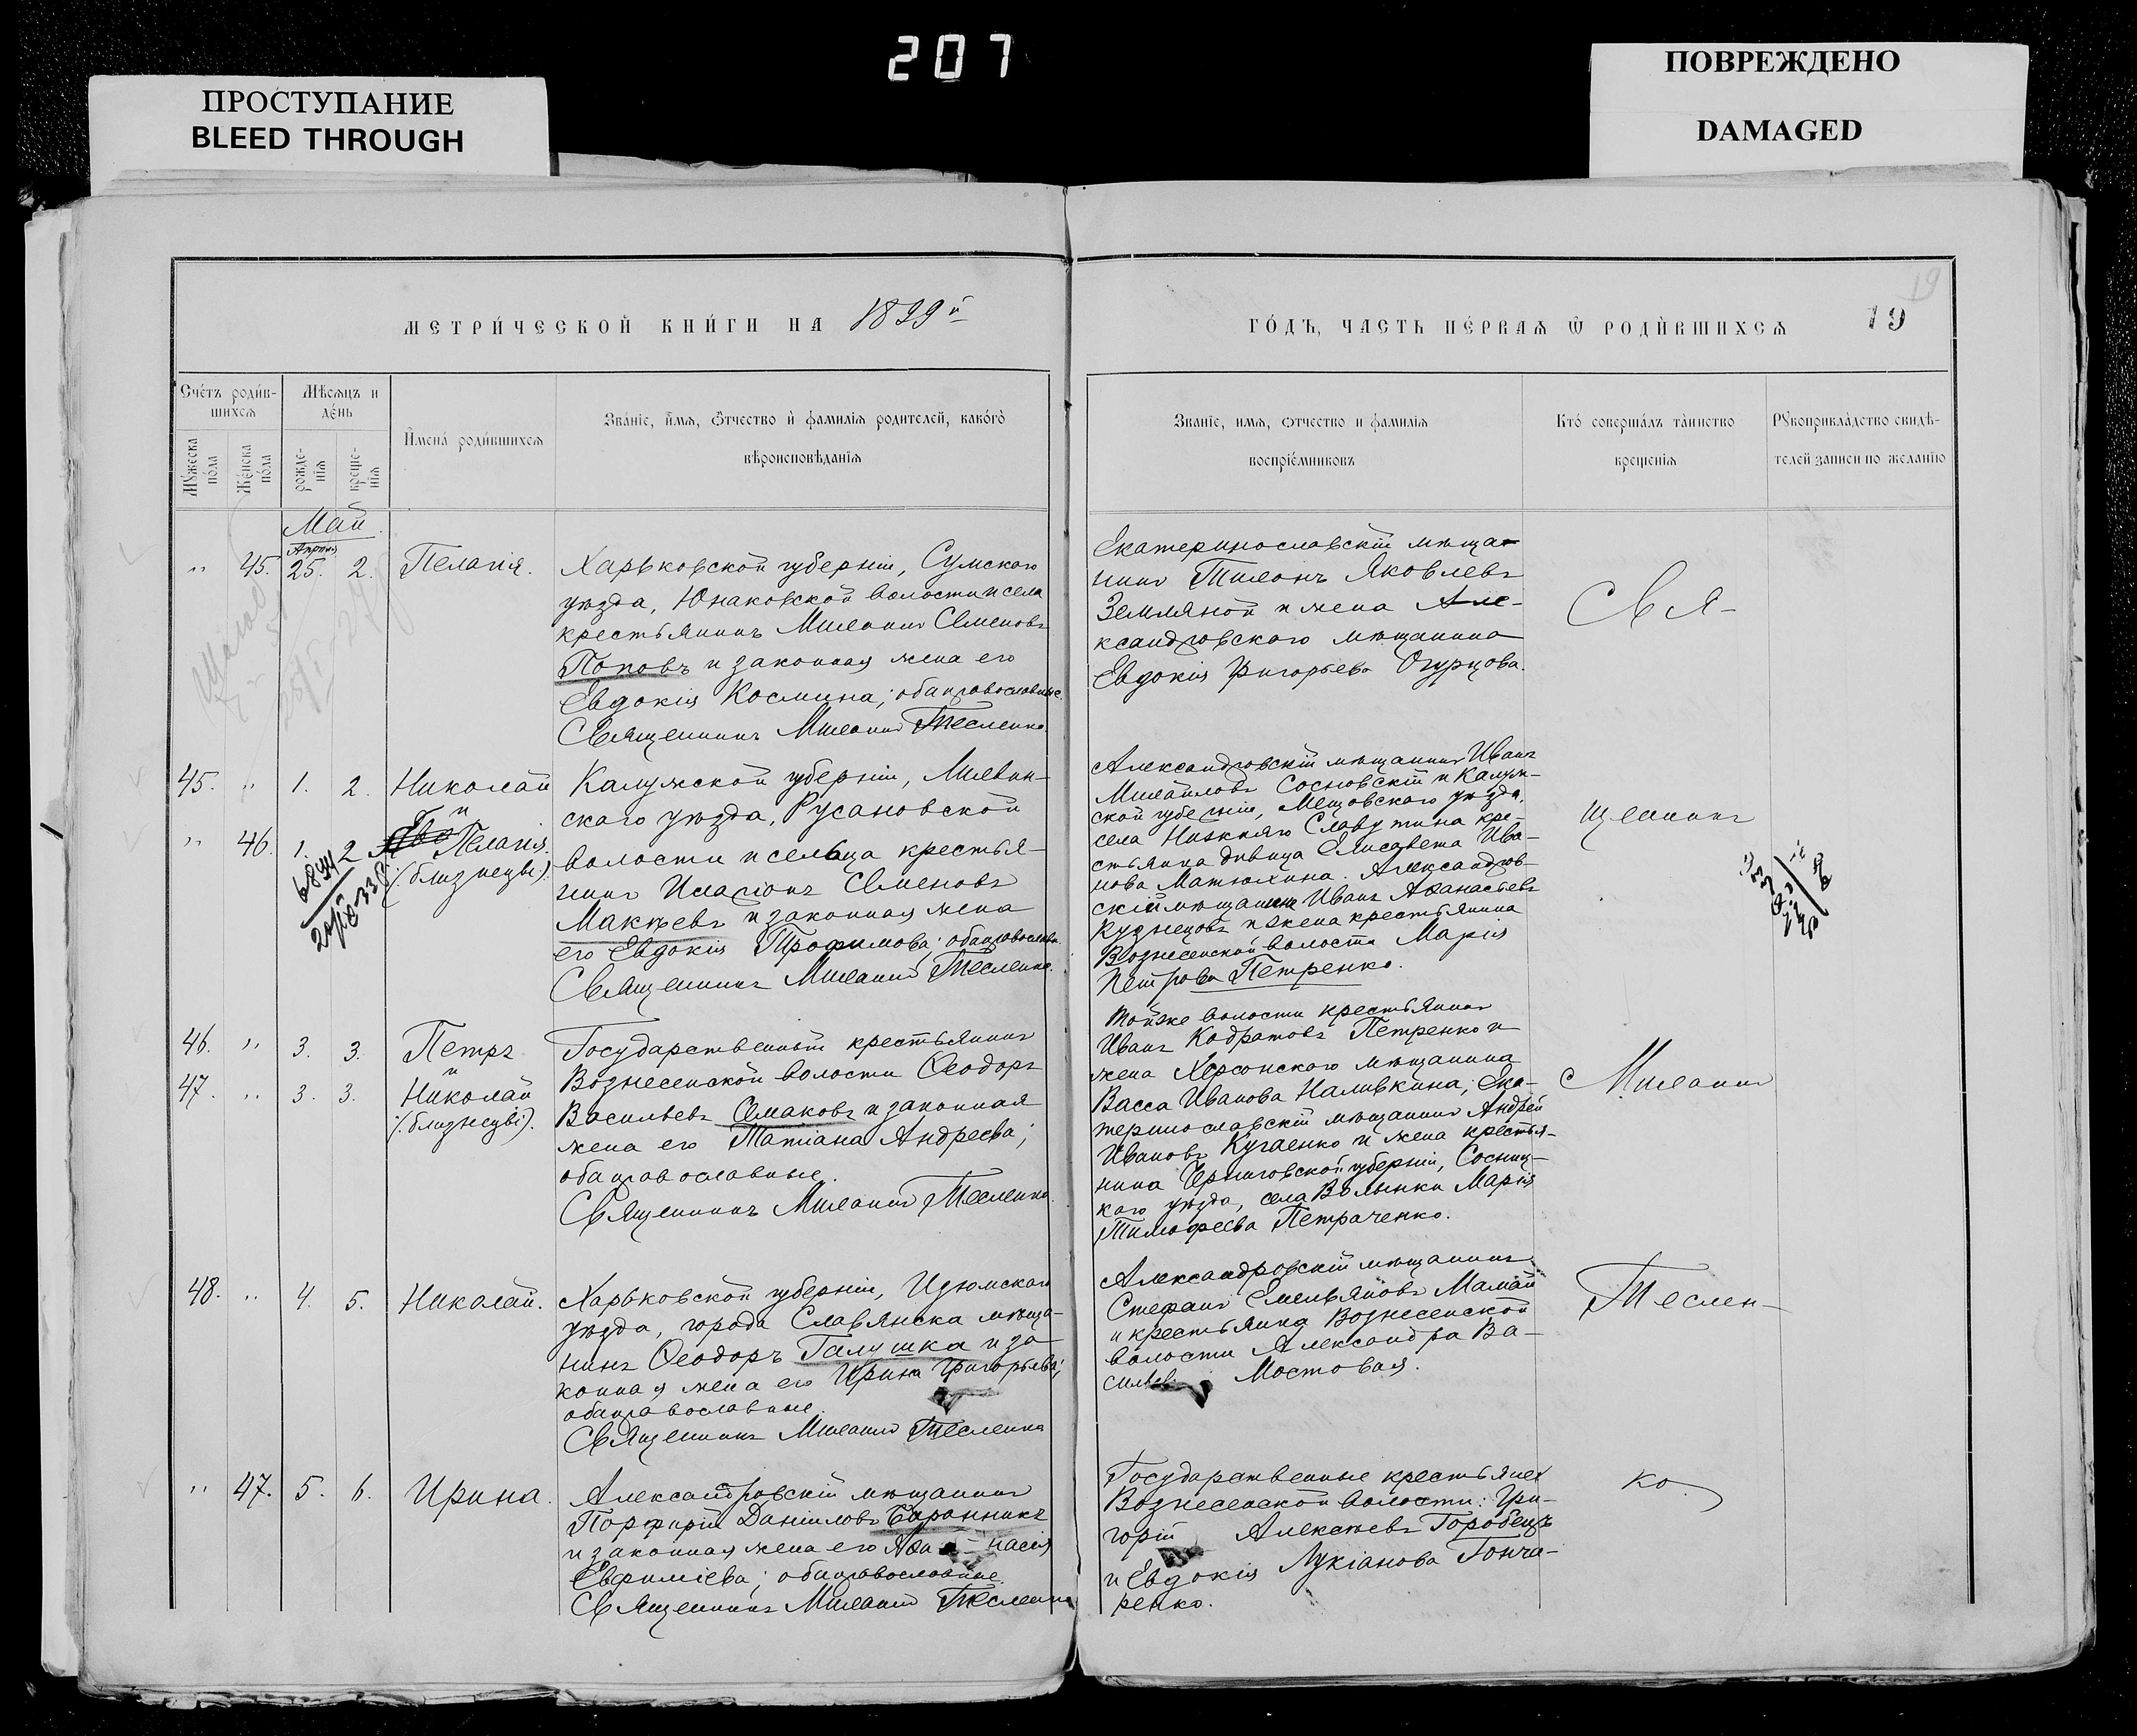 207
ПРОСТУПАНИЕ
BLEED THROUGH
ПОВРЕЖДЕНО
DAMAGED
МЕТРИ́ЧЕСКОЙ КНИ́ГИ НА 1899й
ГО́ДЪ, ЧАСТЬ ПЕ́РВАЯ Ѿ РОДИ́ВШИХСЯ
19
19
Сче́тъ роди́в-
шихся
Мѣсяцъ и
де́нь
Имена́ роди́вшихся
Зва́нїе, и́мя, ѻ҆́тчество и҆ фамилїя родителей, како́гѡ
вѣроисповѣданїя
Му́жеска
по́ла
Же́нска
по́ла
рожде-
нїя
креще-
нїя
Званїе, имя, ѻтчество и фамилїя
воспрїе́мниковъ
Кто́ соверша́лъ та́инство
крещенїя
Рꙋкоприкла́дство свидѣ-
телей записи по желанїю
Май
Апрѣля
" 45. 25. 2. Пелагія.
Харьковской губерніи, Сумскаго
уѣзда, Юнаковской волости и села
крестьянинъ Михаилъ Семеновъ
Поповъ и законная жена его
Евдокія Космина; оба православные.
Священникъ Михаилъ Тесленко.
Екатеринославскій мѣща-
нинъ Тихонъ Яковлевъ
Земляной и жена Але-
ксандровскаго мѣщанина
Евдокія Григорьева Огурцова.
Свя-
45. " 1. 2. Николай
и
" 46. 1. 2 Пелагія.
(близнецы).
Калужской губерніи,
скаго уѣзда, Русановской
волости и сельца крестья-
нинъ Иларіонъ Семеновъ
Макѣевъ и законная жена
его Евдокія Трофимова; оба православн.
Священникъ Михаилъ Тесленко.
Александровскій мѣщанинъ Иванъ
Михайловъ Сосновскій и Калуж-
ской губерніи, Мещовскаго уѣзда,
села Нижняго крес-
стьянка дѣвица Елисавета Ива-
нова Матюхина. Александров-
скій мѣщанинъ Иванъ Аѳанасьевъ
Кузнецовъ и жена крестьянина
Вознесенской волости Марія
Петрова Петренко.
щенникъ
46. " 3. 3. Петръ
и
47. " 3. 3. Николай
(близнецы).
Государственный крестьянинъ
Вознесенской волости Ѳеодоръ
Васильевъ Семаковъ и законная
жена его Татіана Андреева;
оба православные.
Священникъ Михаилъ Тесленко.
Той же волости крестьянинъ
Иванъ Кодратовъ Петренко и
жена Херсонскаго мѣщанина
Васса Иванова Наливкина; Ека-
теринославскій мѣщанинъ Андрей
Ивановъ Кугаенко и жена крестья-
нина Черниговской губерніи, Сосниц-
каго уѣзда, села Волынки Марія
Тимофеева Петраченко.
Михаилъ
48. " 4. 5. Николай.
Харьковской губерніи, Изюмскаго
уѣзда, города Славянска мѣща-
нинъ Ѳеодоръ Галушка и за-
конная жена его Ирина Григорьева;
оба православные.
Священникъ Михаилъ Тесленко
Александровскій мѣщанинъ
Стефанъ Емельяновъ Мамай
и крестьянка Вознесенской
волости Александра Ва-
сильев Мостовая.
Теслен-
" 47. 5. 6. Ирина.
Александровскій мѣщанинъ
Порфирій Даніиловъ Баранникъ
и законная жена его Аѳа-насія
Евфиміева; оба православные.
Священникъ Михаилъ Тесленко
Государственные крестьяне
Вознесенской волости: Гри-
горій Алексѣевъ Горобецъ
и Евдокія Лукіанова Гонча-
ренко.
ко.